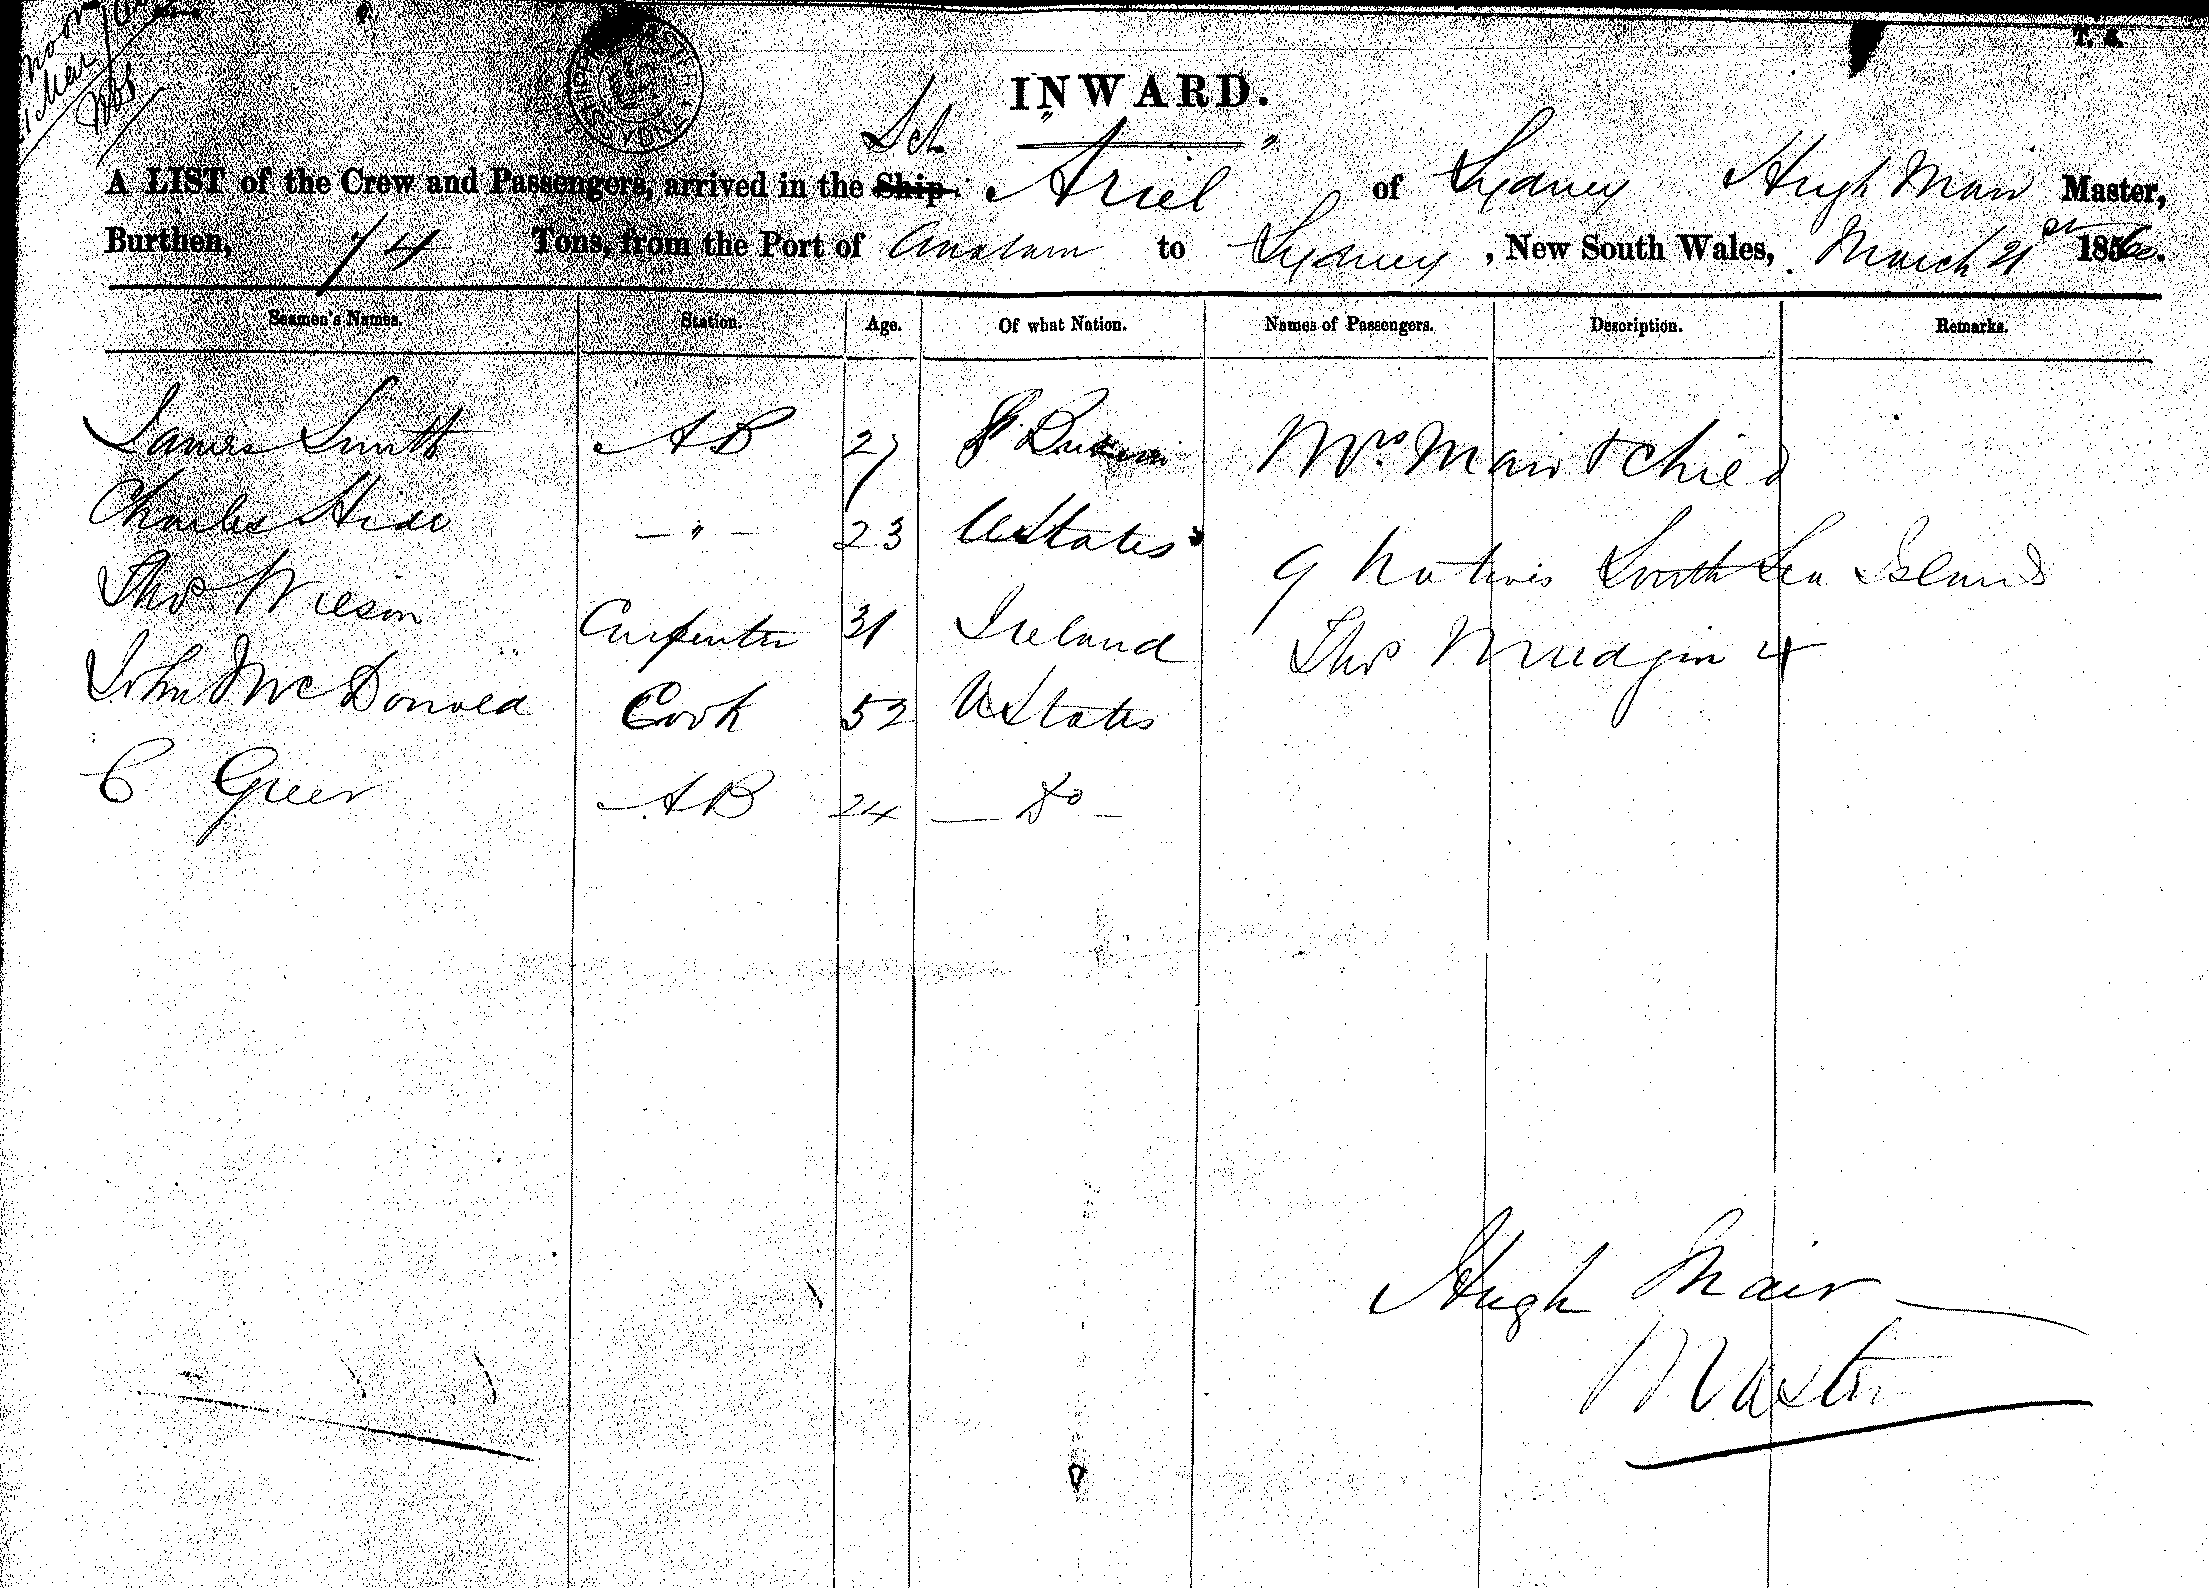 T. &.
INWARD.
Sch
A LIST of the Crew and Passengers, arrived in the Ship "Ariel" of Sydney Hugh Mair Master,
Burthen, 74 Tons, from the Port of to Sydney, New South Wales, March 21st 186
Seamen's Names. Station. Age. Of what Nation. Names of Passengers. Description. Remarks.
James Smith AB 27 Mrs. Mair & Child
Charles Hide — " — 23 U States
9 Natives South Sea Island
Thos Wilson Carpenter 31 Ireland
Thos
John McDonald Cook 52 U States
C Greer AB 24 — Do —
Hugh Mair
Master